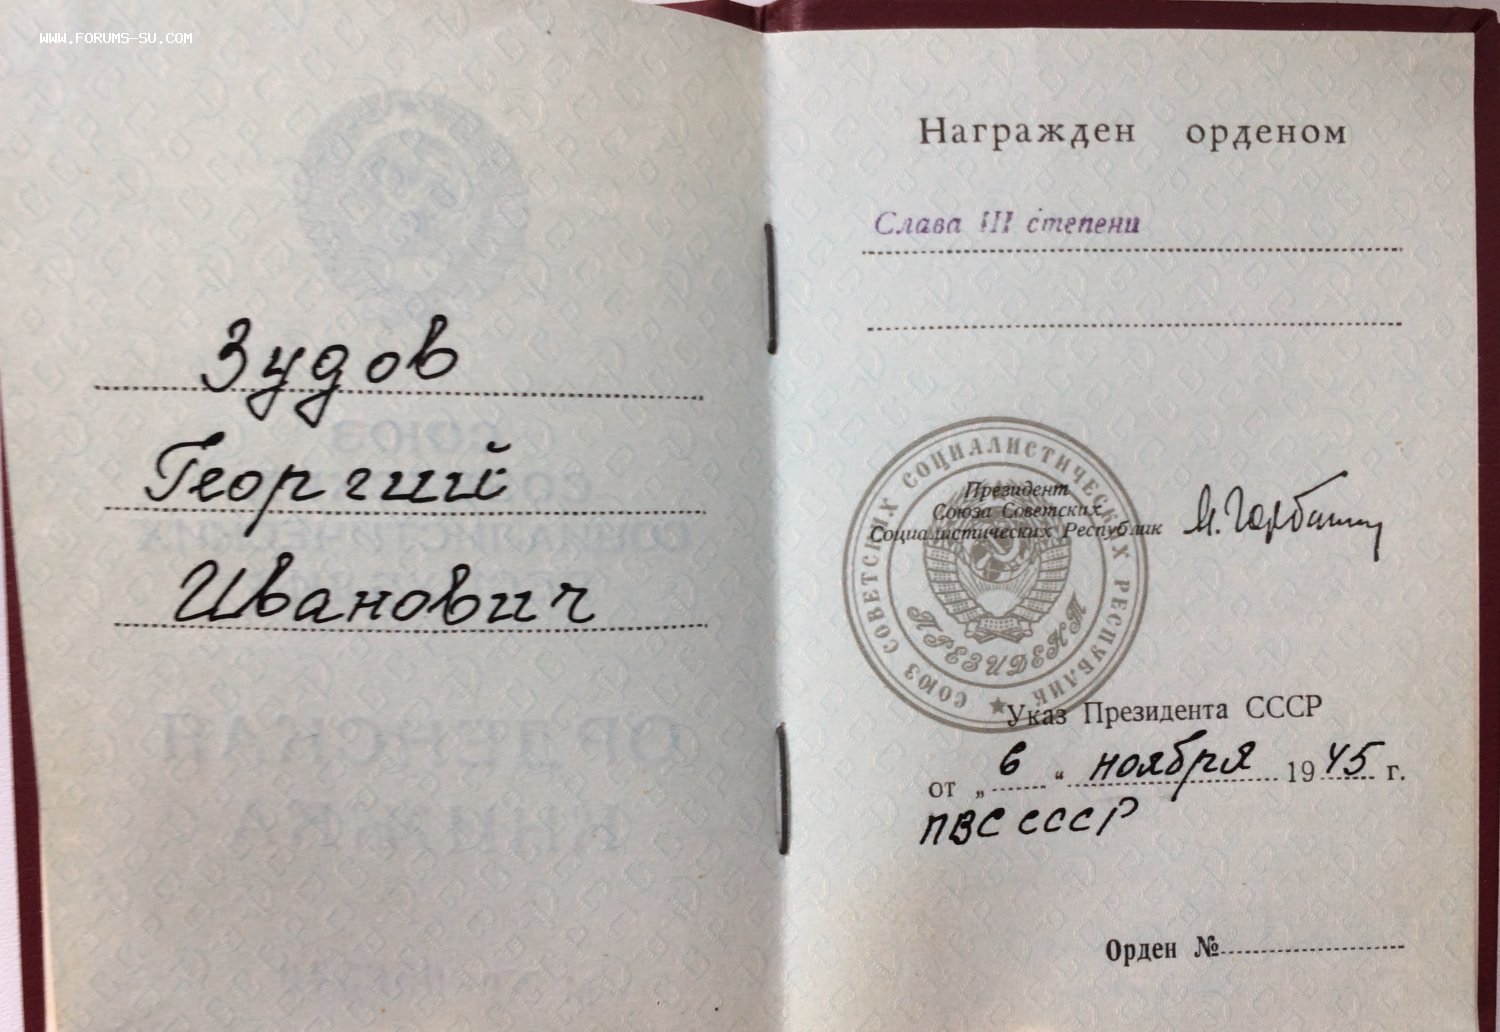 WWW.FORUMS-SU.COM
Зудов
Георгий
Иванович
Награжден орденом
Слава III степени
Президент
Союза Советских
Социалистических Республик
М. Горбачев
СОЮЗ СОВЕТСКИХ СОЦИАЛИСТИЧЕСКИХ РЕСПУБЛИК
ПРЕЗИДЕНТ
Указ Президента СССР
от „ 6 “ ноября 1945 г.
ПВС СССР
Орден №